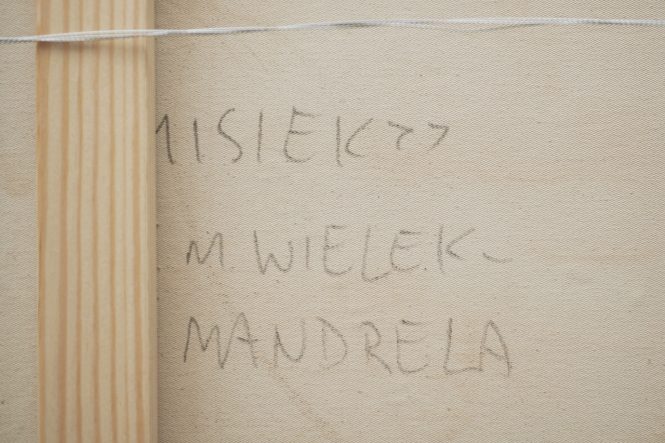 MISIEK>>
M WIELEK-
MANDRELA